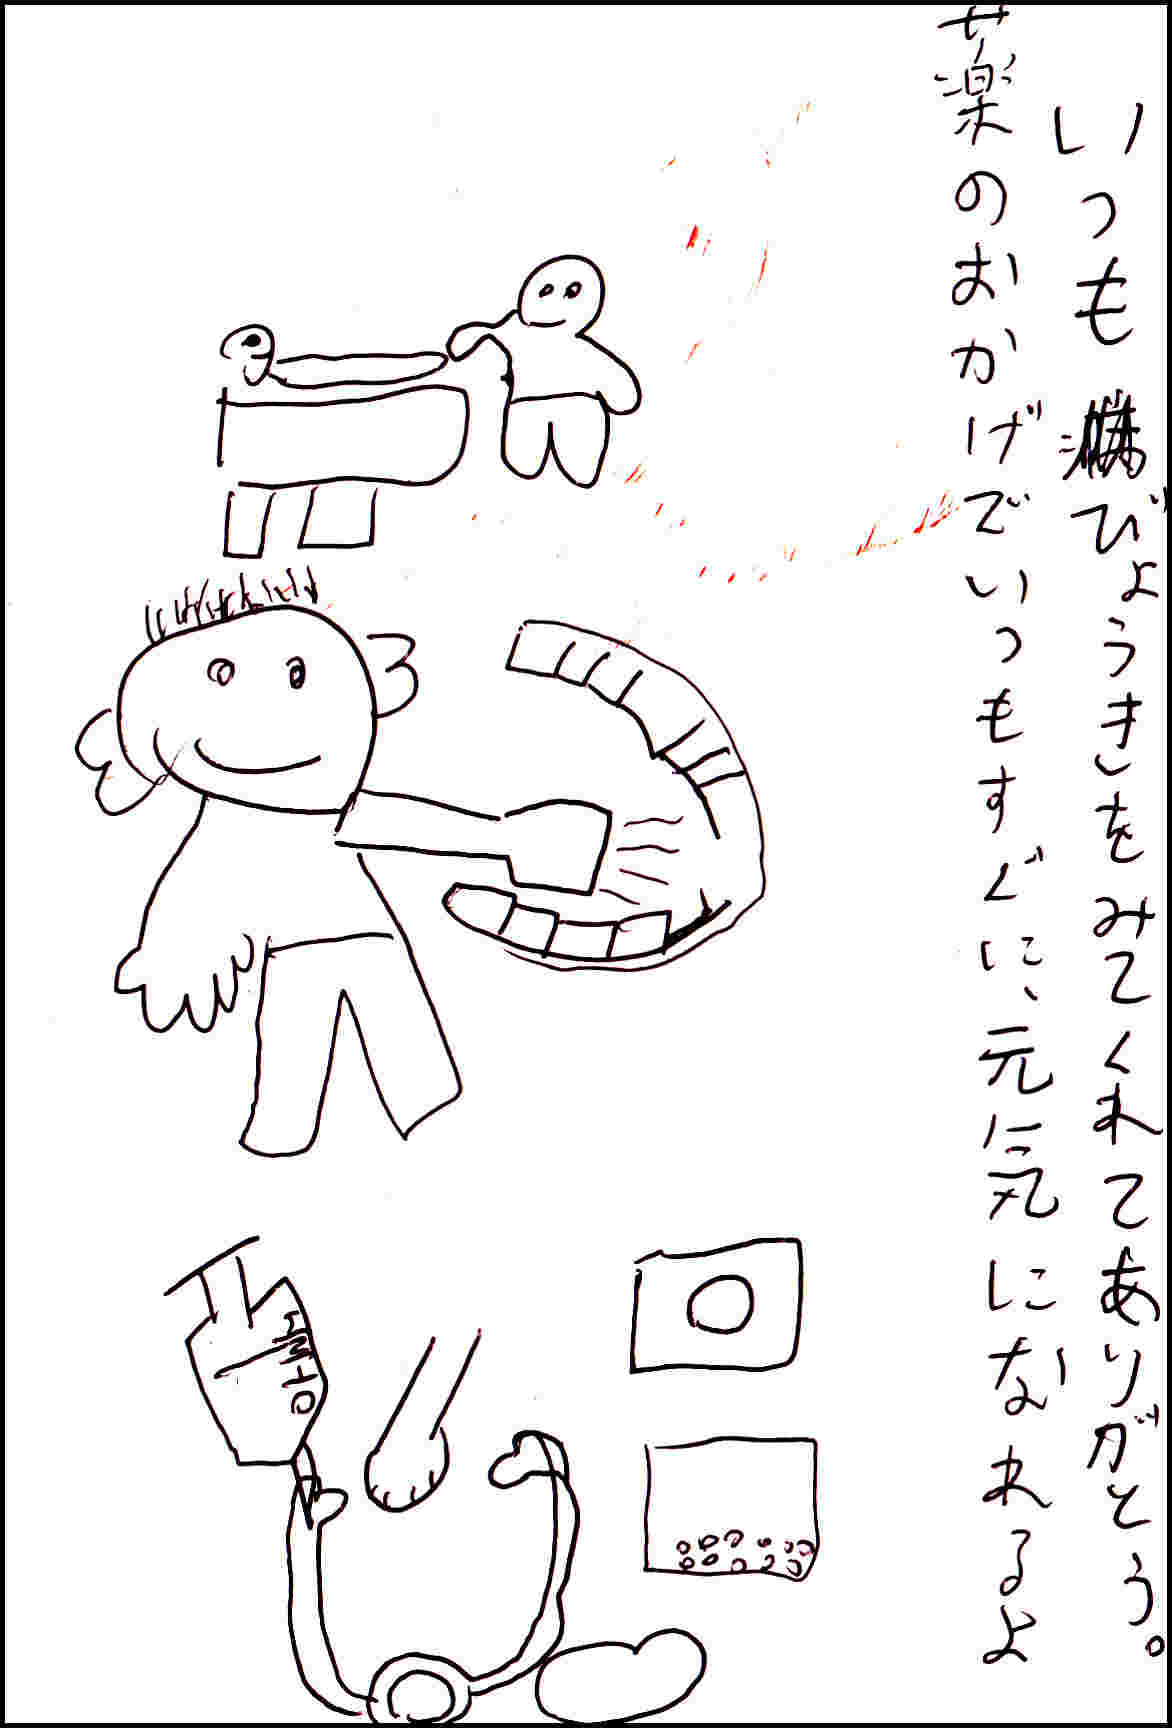 いつもびょうきをみてくれてありがとう。
薬のおかげでいつもすぐに、元気になれるよ